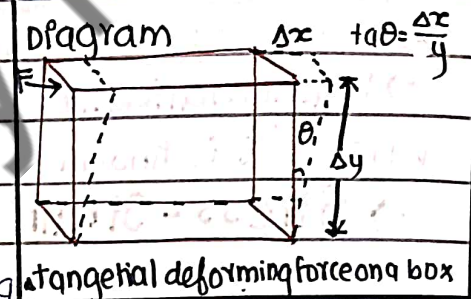 Diagram
Δx
taθ = Δx/y
F
θ
Δy
tangetial deforming force on a box